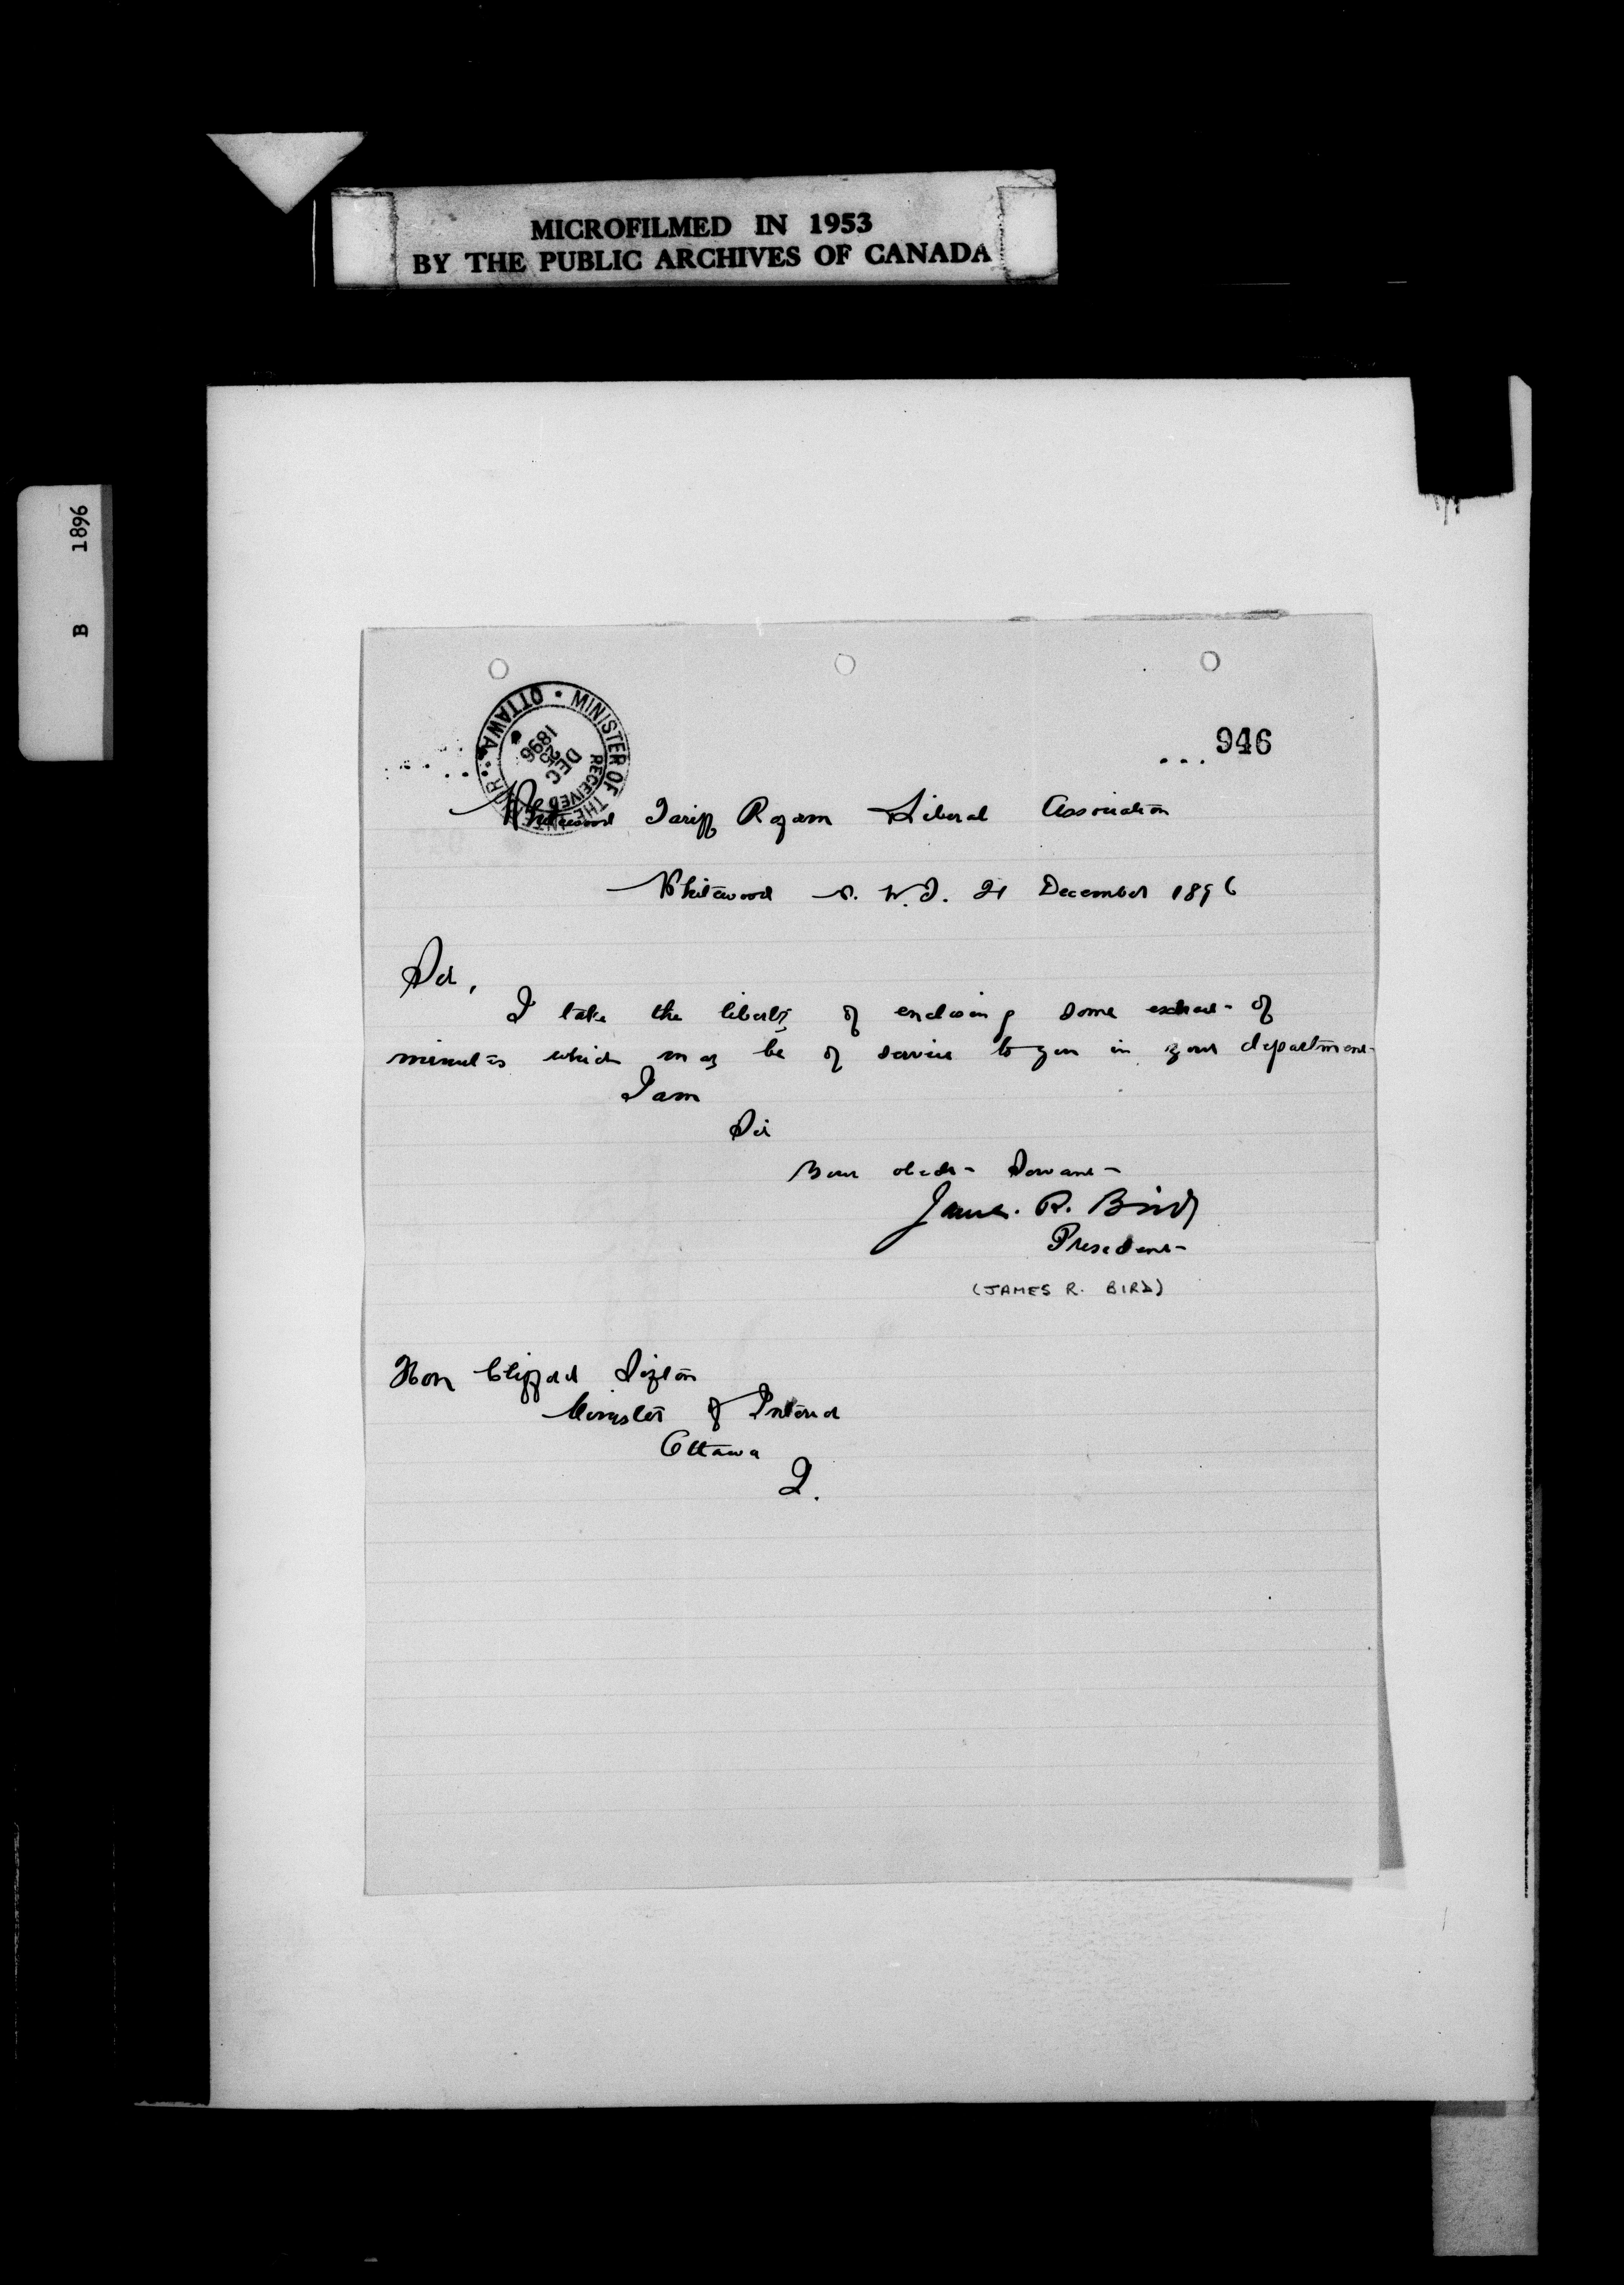 MICROFILMED IN 1953
BY THE PUBLIC ARCHIVES OF CANADA
B 1896
MINISTER OF THE INTERIOR. OTTAWA
RECEIVED
DEC
25
1896
... 946
Whitewood Tariff Reform Liberal Association
Whitewood N. W. T. 21 December 1896
Sir,
I take the liberty of enclosing some extract of
minutes which may be of service to you in your department
I am
Sir
Your obedt Servant
James. R. Bird
President
(JAMES R. BIRD)
Hon Clifford Sifton
Minister of Interior
Ottawa